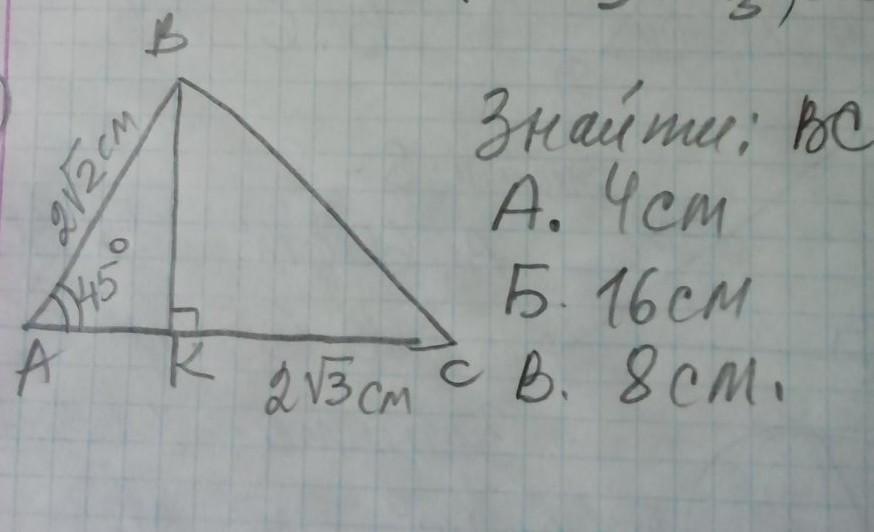 B
2√2 см
45°
A
K
2√3 см
C
Знайти: BC
А. 4 см
Б. 16 см
В. 8 см.